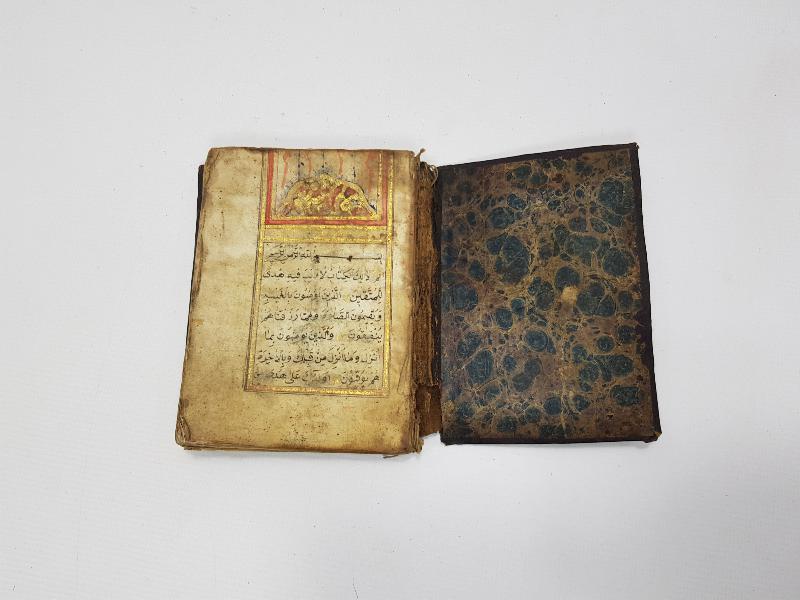 بسم الله الرحمن الرحيم
الم ذلك كتاب لا ريب فيه هدى
للمتقين الذين يؤمنون بالغيب
ويقيمون الصلوة ومما رزقناهم
ينفقون والذين يؤمنون بما
انزل وما انزل من قبلك وبالاخرة
هم يوقنون اولئك على هدى